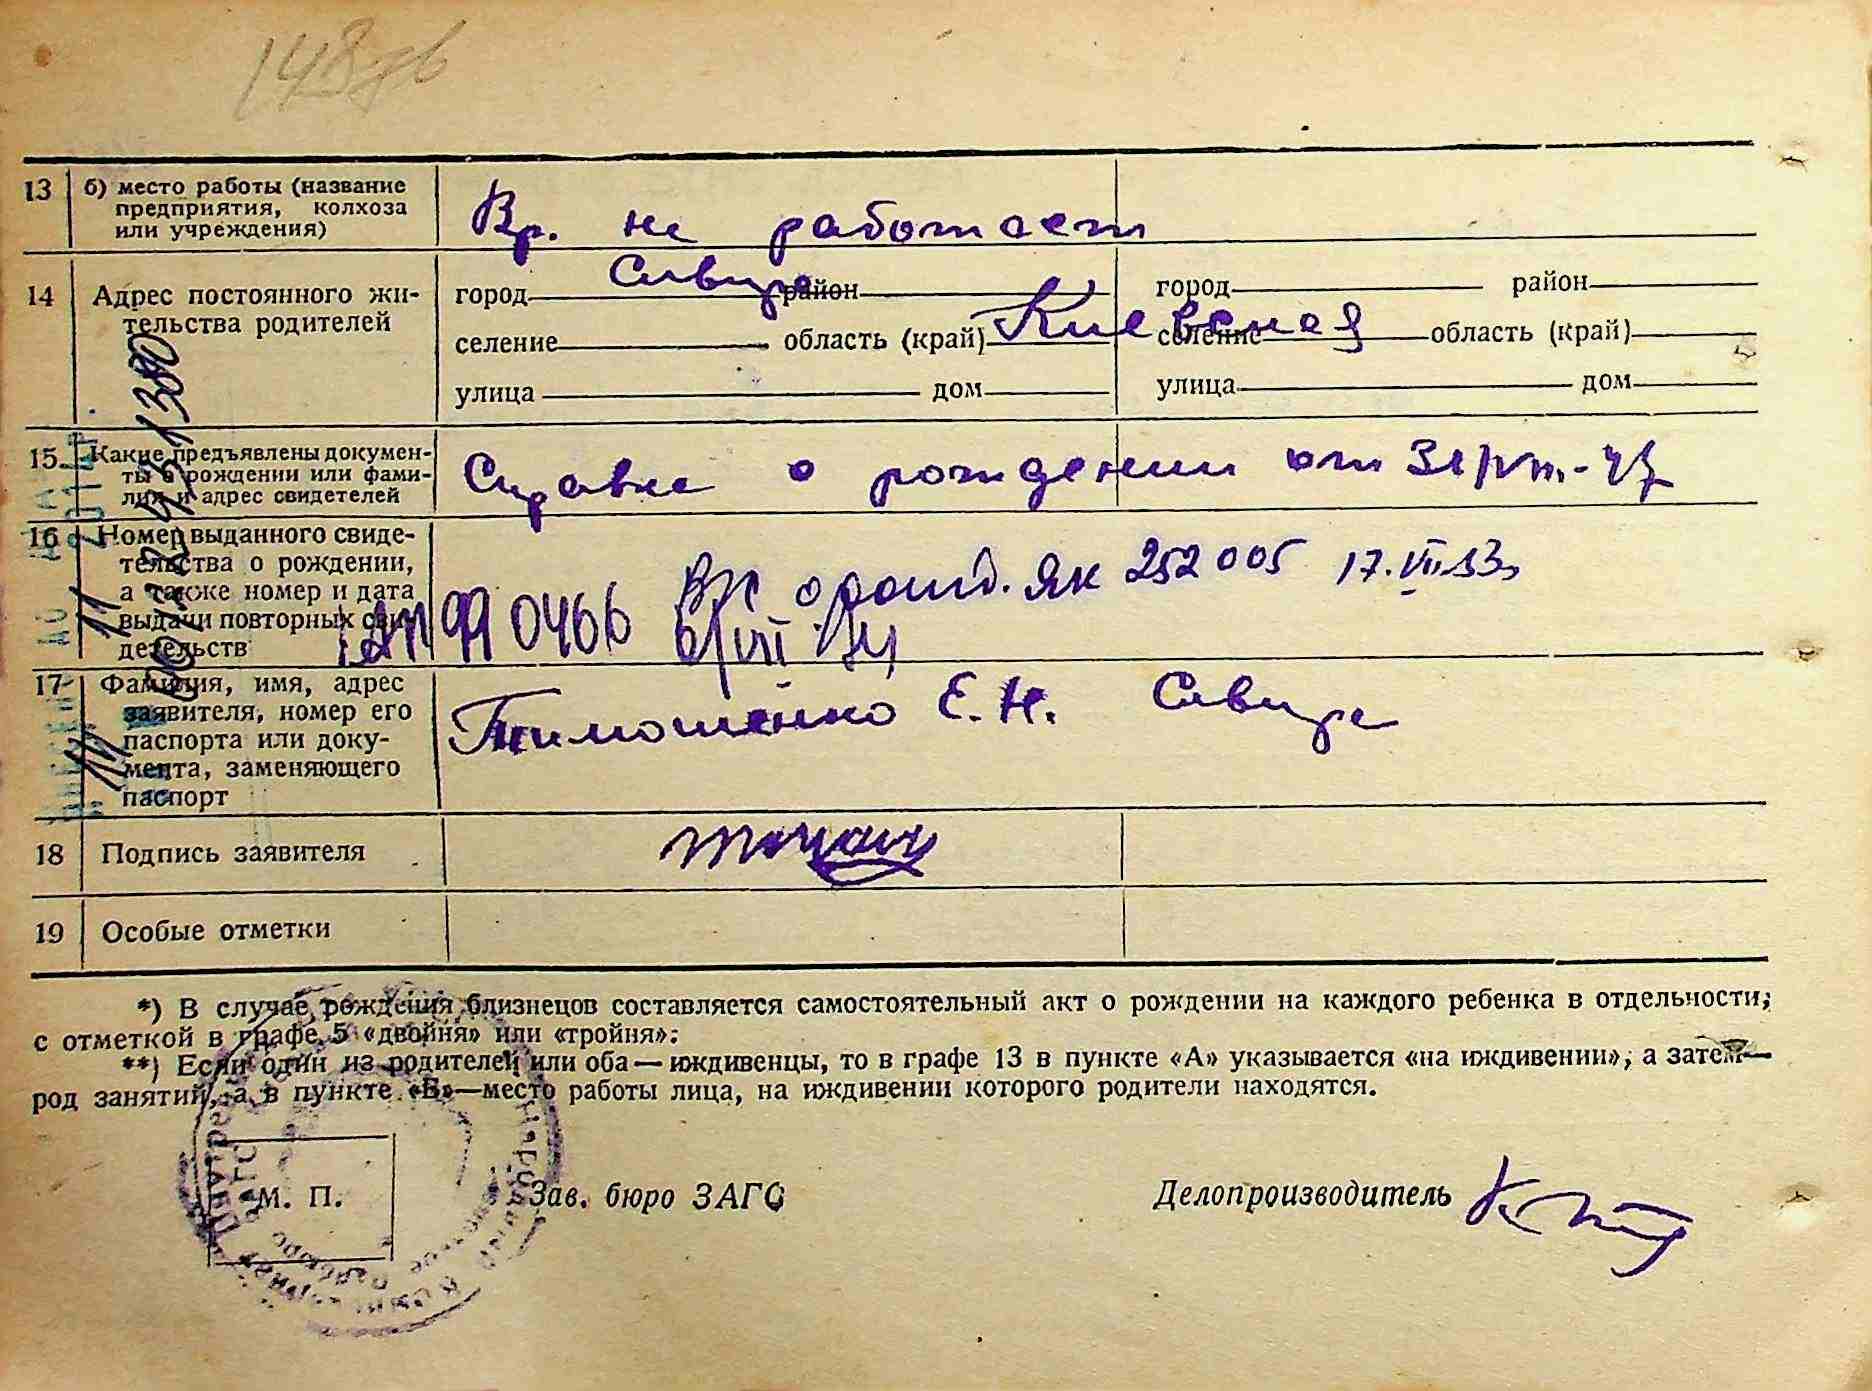 13 б) место работы (название
предприятия, колхоза
или учреждения)
Вр. не работает
14 Адрес постоянного жи-
тельства родителей
город Сквира район
селение область (край) Киевская
улица дом
город район
селение область (край)
улица дом
15 Какие предъявлены докумен-
ты о рождении или фами-
лия и адрес свидетелей
Справка о рождении от 31/VIII-47
16 Номер выданного свиде-
тельства о рождении,
а также номер и дата
выдачи повторных сви-
детельств
о рожд. ЯК 252005 17.VII.53
990466
17 Фамилия, имя, адрес
заявителя, номер его
паспорта или доку-
мента, заменяющего
паспорт
Тимошенко Е.Н. Сквира
18 Подпись заявителя
19 Особые отметки
*) В случае рождения близнецов составляется самостоятельный акт о рождении на каждого ребенка в отдельности,
с отметкой в графе 5 «двойня» или «тройня»:
**) Если один из родителей или оба — иждивенцы, то в графе 13 в пункте «А» указывается «на иждивении», а затем—
род занятий, а в пункте «Б»—место работы лица, на иждивении которого родители находятся.
М. П.
Зав. бюро ЗАГС
Делопроизводитель